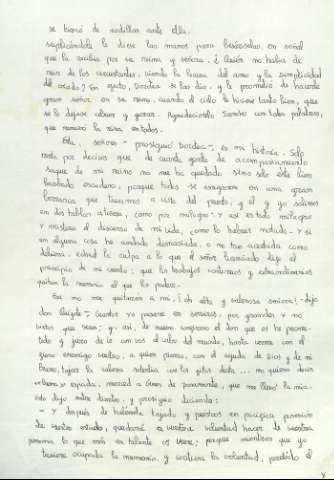 se hincó de rodillas ante ella,
suplicándole le diese las manos para besárselas, en señal
que la recibía por su reina y señora. ¿Quién no había de
reír de los circustantes, viendo la locura del amo y la simplicidad
del criado? En efecto, Dorotea se las dio, y le prometió de hacerle
gran señor en su reino, cuando el cielo le hiciese tanto bien, que
se lo dejase cobrar y gozar. Agradecióselo Sancho con tales palabras,
que renovó la risa en todos.
Esta, señores - prosiguió Dorotea -, es mi historia. Sólo
resta por deciros que de cuanta gente de acompañamiento
saqué de mi reino no me ha quedado sino sólo este buen
barbado escudero, porque todos se anegaron en una gran
borrasca que tuvimos a vista del puerto; y él y yo salimos
en dos tablas a tierra, como por milagro: y así es todo milagro
y misterio el discurso de mi vida, como lo habréis notado. Y si
en alguna cosa he andado demasiada, o no tan acertada como
debiera, echad la culpa a lo que el señor licenciado dijo al
principio de mi cuento: que los trabajos continuos y extraordinarios
quitan la memoria al que los padece.
Esa no me quitarán a mí, ¡oh alta y valerosa señora! - dijo
don Quijote -, cuantos yo pasare en serviros, por grandes y no
vistos que sean; y así, de nuevo confirmo el don que os he prome-
tido y juro de ir con vos al cabo del mundo, hasta verme con el
fiero enemigo vuestro, a quien pienso, con el ayuda de Dios y de mi
brazo, tajar la cabeza soberbia con los filos desta ... no quiero decir
«buena» espada, merced a Ginés de Pasamonte, que me llevó la mía.
esto dijo entre dientes, y prosiguió diciendo:
- Y después de habérsela tajado y puéstoos en pacífica posesión
de vuestro estado, quedará a vuestra voluntad hacer de vuestra
persona lo que más en talante os viniere; porque mientras que yo
tuviere ocupada la memoria y cautiva la voluntad, perdido el